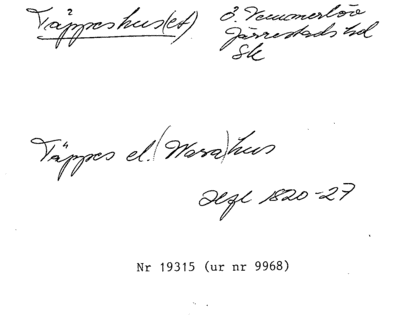 Täppeshus(et) Ö. Vemmerlöv
Järrestads hd
Sk
Täppes el. (Wara)hus
Hfl 1820-27
Nr 19315 (ur nr 9968)